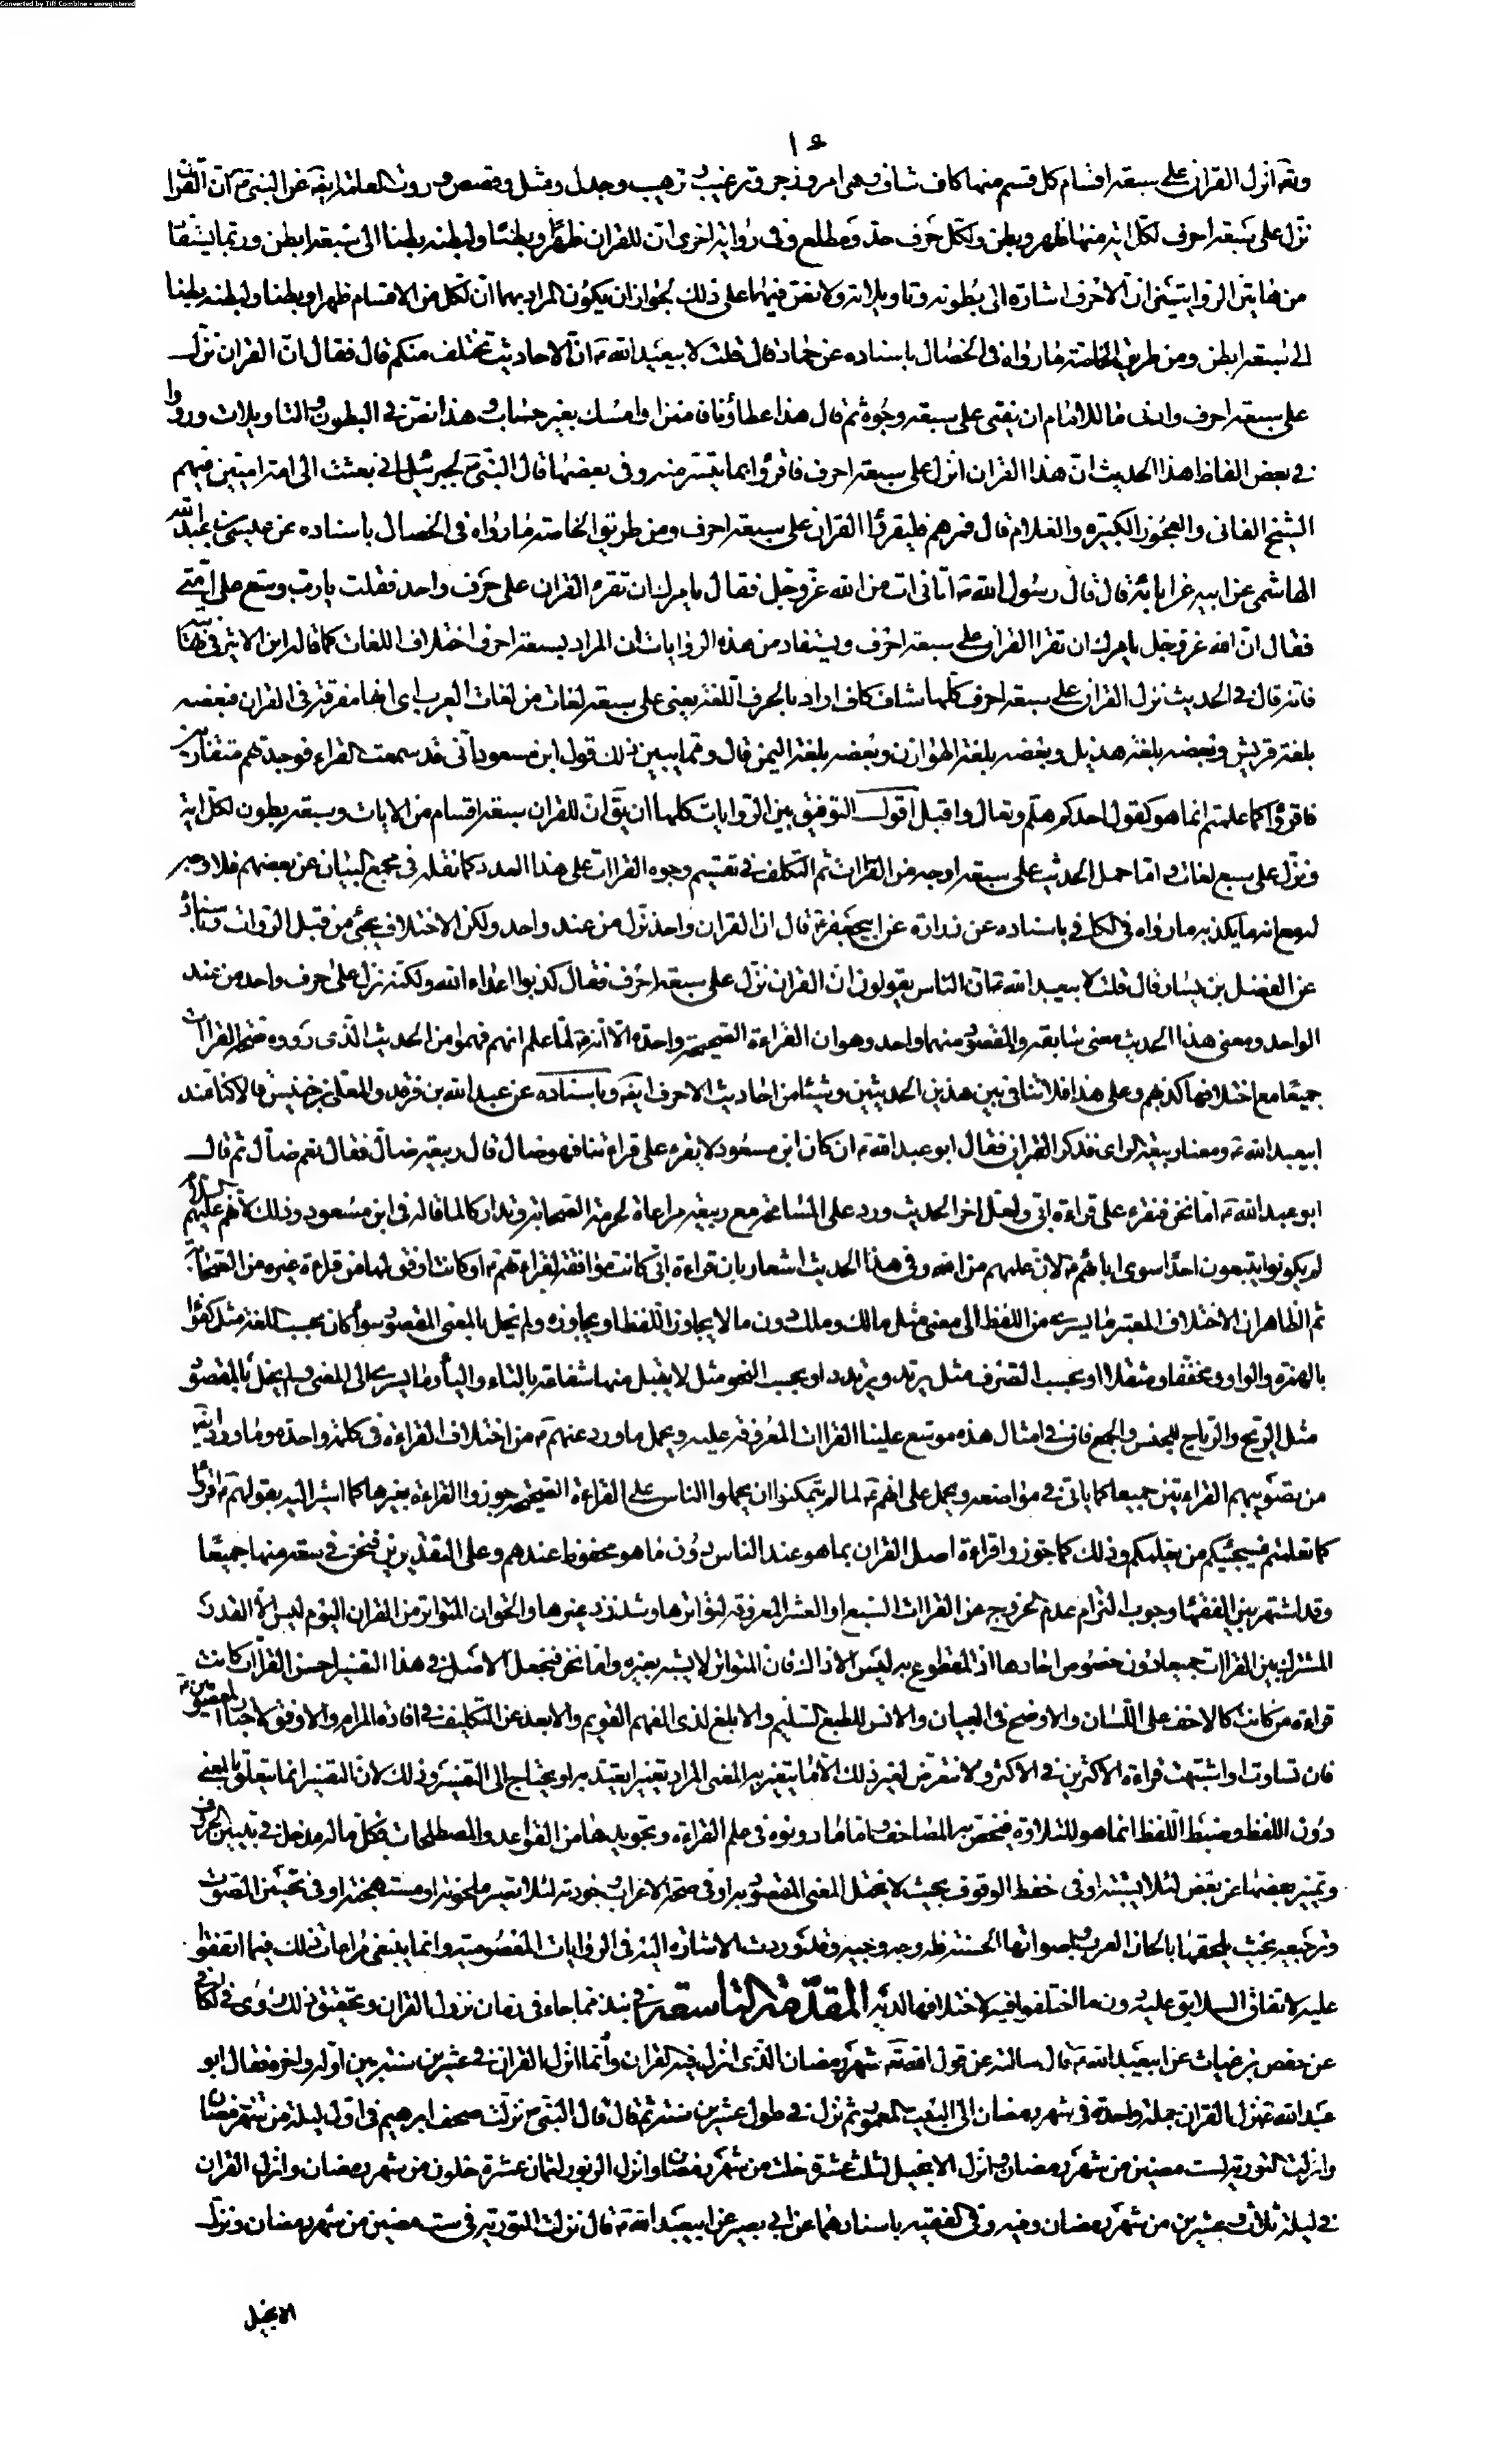 Converted by Tiff Combine - unregistered
١٤
وتعالى انزل القران على سبعة اقسام كل قسم منها كاف شاف وهى امر وزجر وترغيب وترهيب وجدل ومثل وقصص وروت العامة ايضا عن النبى ص ان القران
نزل على سبعة احرف لكل اية منها ظهر وبطن ولكل حرف حد ومطلع وفى رواية اخرى ان للقران ظهرا وبطنا ولبطنه بطنا الى سبعة ابطن وربما يستفاد
من هاتين الروايتين ان الاحرف اشارة الى بطونه وتاويلاته ولا نص فيهما على ذلك لجواز ان يكون المراد بهما ان لكل من الاقسام ظهرا وبطنا ولبطنه بطنا
الى سبعة ابطن ومن طريق الخاصة ما رواه فى الخصال باسناده عن حماد قال قلت لابيعبد الله ع ان الاحاديث تختلف منكم قال فقال ان القران نزل
على سبعة احرف وادنى ما للامام ان يفتى على سبعة وجوه ثم قال هذا عطاؤنا فامنن او امسك بغير حساب وهذا نص فى البطون والتاويلات ورووا
فى بعض الفاظ هذا الحديث ان هذا القران انزل على سبعة احرف فاقرؤا بما تيسر منه وفى بعضها قال النبى ص لجبرئيل انى بعثت الى امة اميين فيهم
الشيخ الفانى والعجوز الكبيرة والغلام قال فمرهم فليقرؤا القران على سبعة احرف ومن طريق الخاصة ما رواه فى الخصال باسناده عن عيسى بن عبد الله
الهاشمى عن ابيه عن ابائه قال قال رسول الله ص اتانى ات من الله عز وجل فقال يامرك ان تقرء القران على حرف واحد فقلت يا رب وسع على امتى
فقال ان الله عز وجل يامرك ان تقرا القران على سبعة احرف ويستفاد من هذه الروايات ان المراد بسبعة احرف اختلاف اللغات كما قاله ابن الاثير فى نهايته
فانه قال فى الحديث نزل القران على سبعة احرف كلها شاف كاف اراد بالحرف اللغة يعنى على سبعة لغات من لغات العرب اى انها مفرقة فى القران فبعضه
بلغة قريش وبعضه بلغة هذيل وبعضه بلغة الهوازن وبعضه بلغة اليمن قال ومما يبين ذلك قول ابن مسعود انى قد سمعت القراء فوجدتهم متقاربين
فاقرؤا كما علمتم انما هو كقول احدكم هلم وتعال واقبل اقول التوفيق بين الروايات كلها ان يق ان للقران سبعة اقسام من الايات وسبعة بطون لكل اية
ونزل على سبع لغات واما حمل الحديث على سبعة اوجه من القراات ثم التكلف فى تقسيم وجوه القراات على هذا العدد كما نقله فى مجمع البيان عن بعضهم فلا وجه
له مع انه ما يكذبه ما رواه فى الكافى باسناده عن زرارة عن ابيجعفر ع قال ان القران واحد نزل من عند واحد ولكن الاختلاف يجئ من قبل الرواة وباسناده
عن الفضيل بن يسار قال قلت لابيعبد الله ع ان الناس يقولون ان القران نزل على سبعة احرف فقال كذبوا اعداء الله ولكنه نزل على حرف واحد من عند
الواحد ومعنى هذا الحديث معنى سابقه والمقصود منهما واحد وهو ان القراءة الصحيحة واحدة الا انه ع لما علم انهم فهموا من الحديث الذى رووه صحة القراات
جميعا مع اختلافها كذبهم وعلى هذا فلا تنافى بين هذين الحديثين وشئ من احاديث الاحرف ايضا وباسناده عن عبد الله بن فرقد والمعلى بن خنيس قالا كنا عند
ابيعبد الله ع ومعنا ربيعة الراى فذكر القران فقال ابو عبد الله ع ان كان ابن مسعود لا يقرء على قراءتنا فهو ضال قال ربيعة ضال فقال نعم ضال ثم قال
ابو عبد الله ع اما نحن فنقرء على قراءة ابى ولعل اخر الحديث ورد على المسامحة مع ربيعة مراعاة لحرمة الصحابة وتداركا لما قاله فى ابن مسعود وذلك لانهم عليهم السلام
لم يكونوا يتبعون احدا سوى ابائهم ع لان علمهم من الله وفى هذا الحديث اشعار بان قراءة ابى كانت موافقة لقراءتهم ع او كانت اوفق لها من قراءة غيره من الصحابة
ثم الظاهر ان الاختلاف المعتبر ما يسرى من اللفظ الى معنى مثل مالك وملك دون ما لا يجاوز اللفظ او يجاوزه ولم يخل بالمعنى المقصود سواء كان بحسب اللغة مثل كفؤا
بالهمزة والواو ومخففا ومثقلا او بحسب الصرف مثل يرتد ويرتدد او بحسب النحو مثل لا يقبل منها شفاعة بالتاء والياء وما يسرى الى المعنى ولم يخل بالمقصود
مثل الريح والرياح للجنس والجمع فان فى امثال هذه موسع علينا القراات المعروفة وعليه يحمل ما ورد عنهم ع من اختلاف القراءة فى كلمة واحدة وما ورد ايضا
من تصويبهم القراءتين جميعا كما ياتى فى مواضعه ويحمل على انهم ع لما لم يتمكنوا ان يحملوا الناس على القراءة الصحيحة جوزوا القراءة بغيرها كما اشير اليه بقولهم ع اقرؤا
كما تعلمتم فسيجيئكم من يعلمكم وذلك كما جوزوا قراءة اصل القران بما هو عند الناس دون ما هو محفوظ عندهم وعلى التقديرين فنحن فى سعة منها جميعا
وقد اشتهر بين الفقهاء وجوب التزام عدم الخروج عن القراات السبع او العشر المعروفة لتواترها وشذوذ غيرها والحق ان المتواتر من القران اليوم ليس الا القدر
المشترك بين القراات جميعا دون خصوص احادها اذ المقطوع به ليس الا ذاك فان المتواتر لا يشتبه بغيره واما نحن فنجعل الاصل فى هذا التفسير احسن القراات كانت
قراءة من كانت كالاخف على اللسان والاوضح فى البيان والانس للطبع السليم والابلغ لذى الفهم القويم والابعد عن التكليف فى افادة المرام والاوفق لاخبار المعصومين ع
فان تساوت او اشتبهت فقراءة الاكثرين فى الاكثر ولا نتعرض لغير ذلك الا ما يتغير به المعنى المراد تغييرا يعتد به او يحتاج الى التفسير وذلك لان التفسير انما يتعلق بالمعنى
دون اللفظ وضبط اللفظ انما هو للتلاوة فيختص به المصاحف واما ما دونوه فى علم القراءة وتجويدها من القواعد والمصطلحات فكل ماله مدخل فى تبيين الحروف
وتمييز بعضها عن بعض لئلا يشتبه او فى حفظ الوقوف بحيث لا يختل المعنى المقصود به او فى صحة الاعراب وجودته لئلا تصير ملحونة او مستهجنة او فى تحسين الصوت
وترجيعه بحيث يلحقها بالحان العرب واصواتها الحسنة فله وجه وجيه وقد وردت الاشارة اليه فى الروايات المعصومية وانما ينبغى مراعات ذلك فيما اتفقوا
عليه لاتفاق السلايق عليه دون ما اختلفوا فيه لاختلافها لديه المقدمة التاسعة فى نبذ مما جاء فى زمان نزول القران وتحقيق ذلك روى فى الكافى
عن حفص بن غياث عن ابيعبد الله ع قال سالته عن قول الله تعالى شهر رمضان الذى انزل فيه القران وانما انزل القران فى عشرين سنة بين اوله واخره فقال ابو
عبد الله ع نزل القران جملة واحدة فى شهر رمضان الى البيت المعمور ثم نزل فى طول عشرين سنة ثم قال قال النبى ص نزلت صحف ابرهيم فى اول ليلة من شهر رمضان
وانزلت التورية لست مضين من شهر رمضان وانزل الانجيل لثلث عشرة خلت من شهر رمضان وانزل الزبور لثمان عشرة خلون من شهر رمضان وانزل القران
فى ليلة ثلاث وعشرين من شهر رمضان وفيه وفى الفقيه باسنادهما عن ابى بصير عن ابيعبد الله ع قال نزلت التورية فى ست مضين من شهر رمضان ونزل
الانجيل